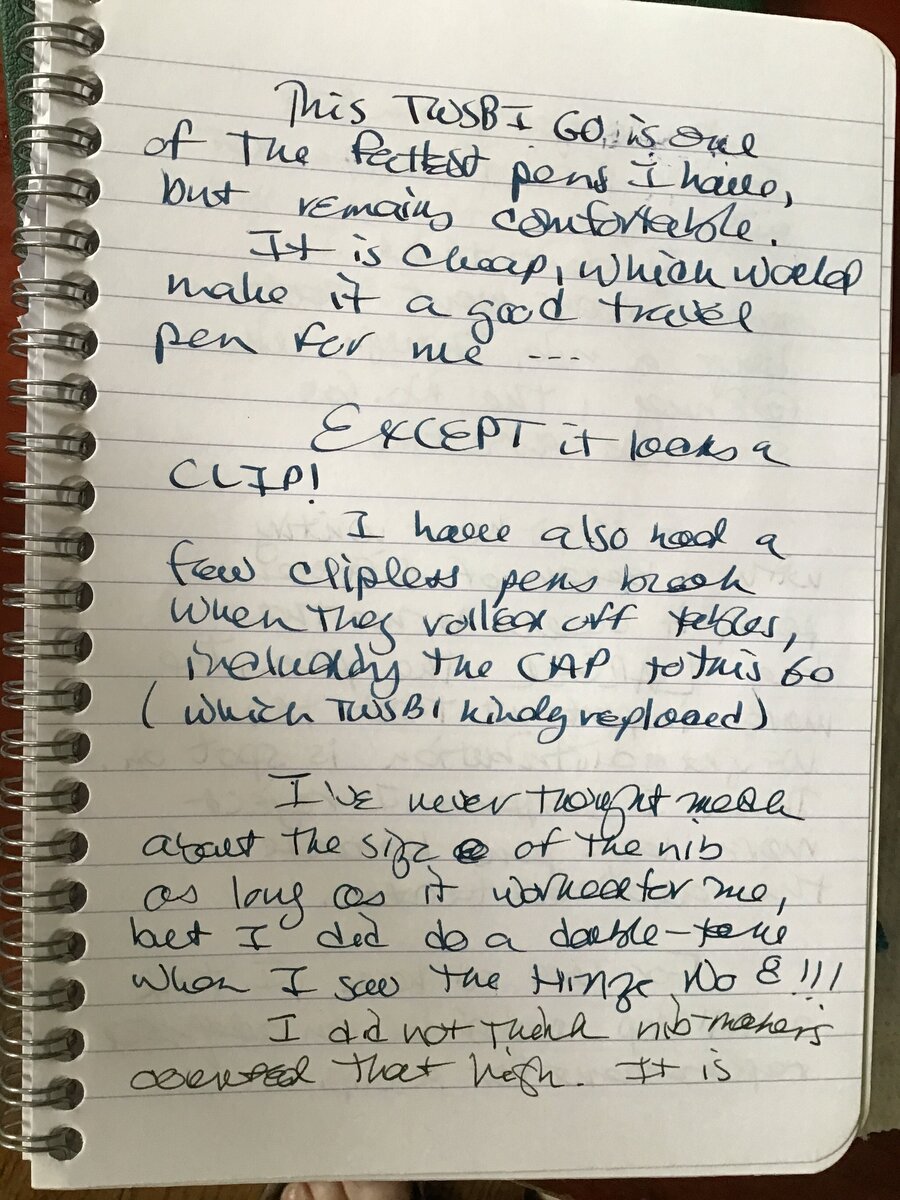 This TWSBI GO is one
of the fattest pens I have,
but remains comfortable.
It is cheap, which would
make it a good travel
pen for me ---
EXCEPT it lacks a
CLIP!
I have also had a
few clipless pens break
when they rolled off tables,
including the CAP to this GO
(which TWSBI kindly replaced)
I've never thought much
about the size of the nib
as long as it worked for me,
but I did do a double-take
when I saw the Hinze No 8!!!
I did not think nib-makers
that high. It is